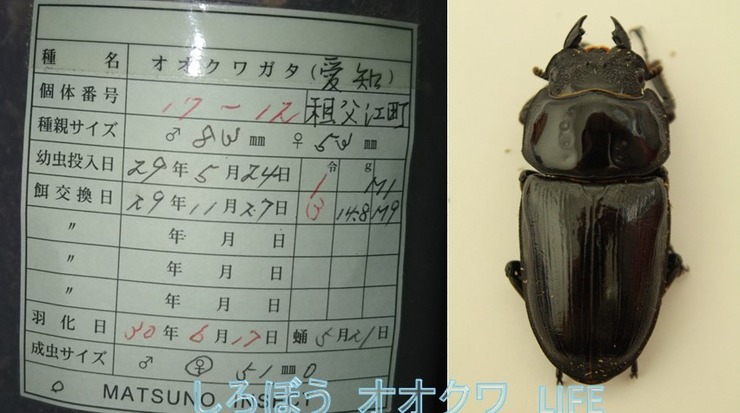 種 名 オオクワガタ(愛知)
個体番号 17-12 祖父江町
種親サイズ ♂ 83 mm ♀ 53 mm
幼虫投入日 29年5月24日 令 1 g M1
餌交換日 29年11月27日 3 14.8 M9
〃 年 月 日
〃 年 月 日
〃 年 月 日
羽化日 30年6月17日 蛹 5月21日
成虫サイズ ♂ ♀ 51mm 0
MATSUNO INSECT
しろぼう オオクワ LIFE